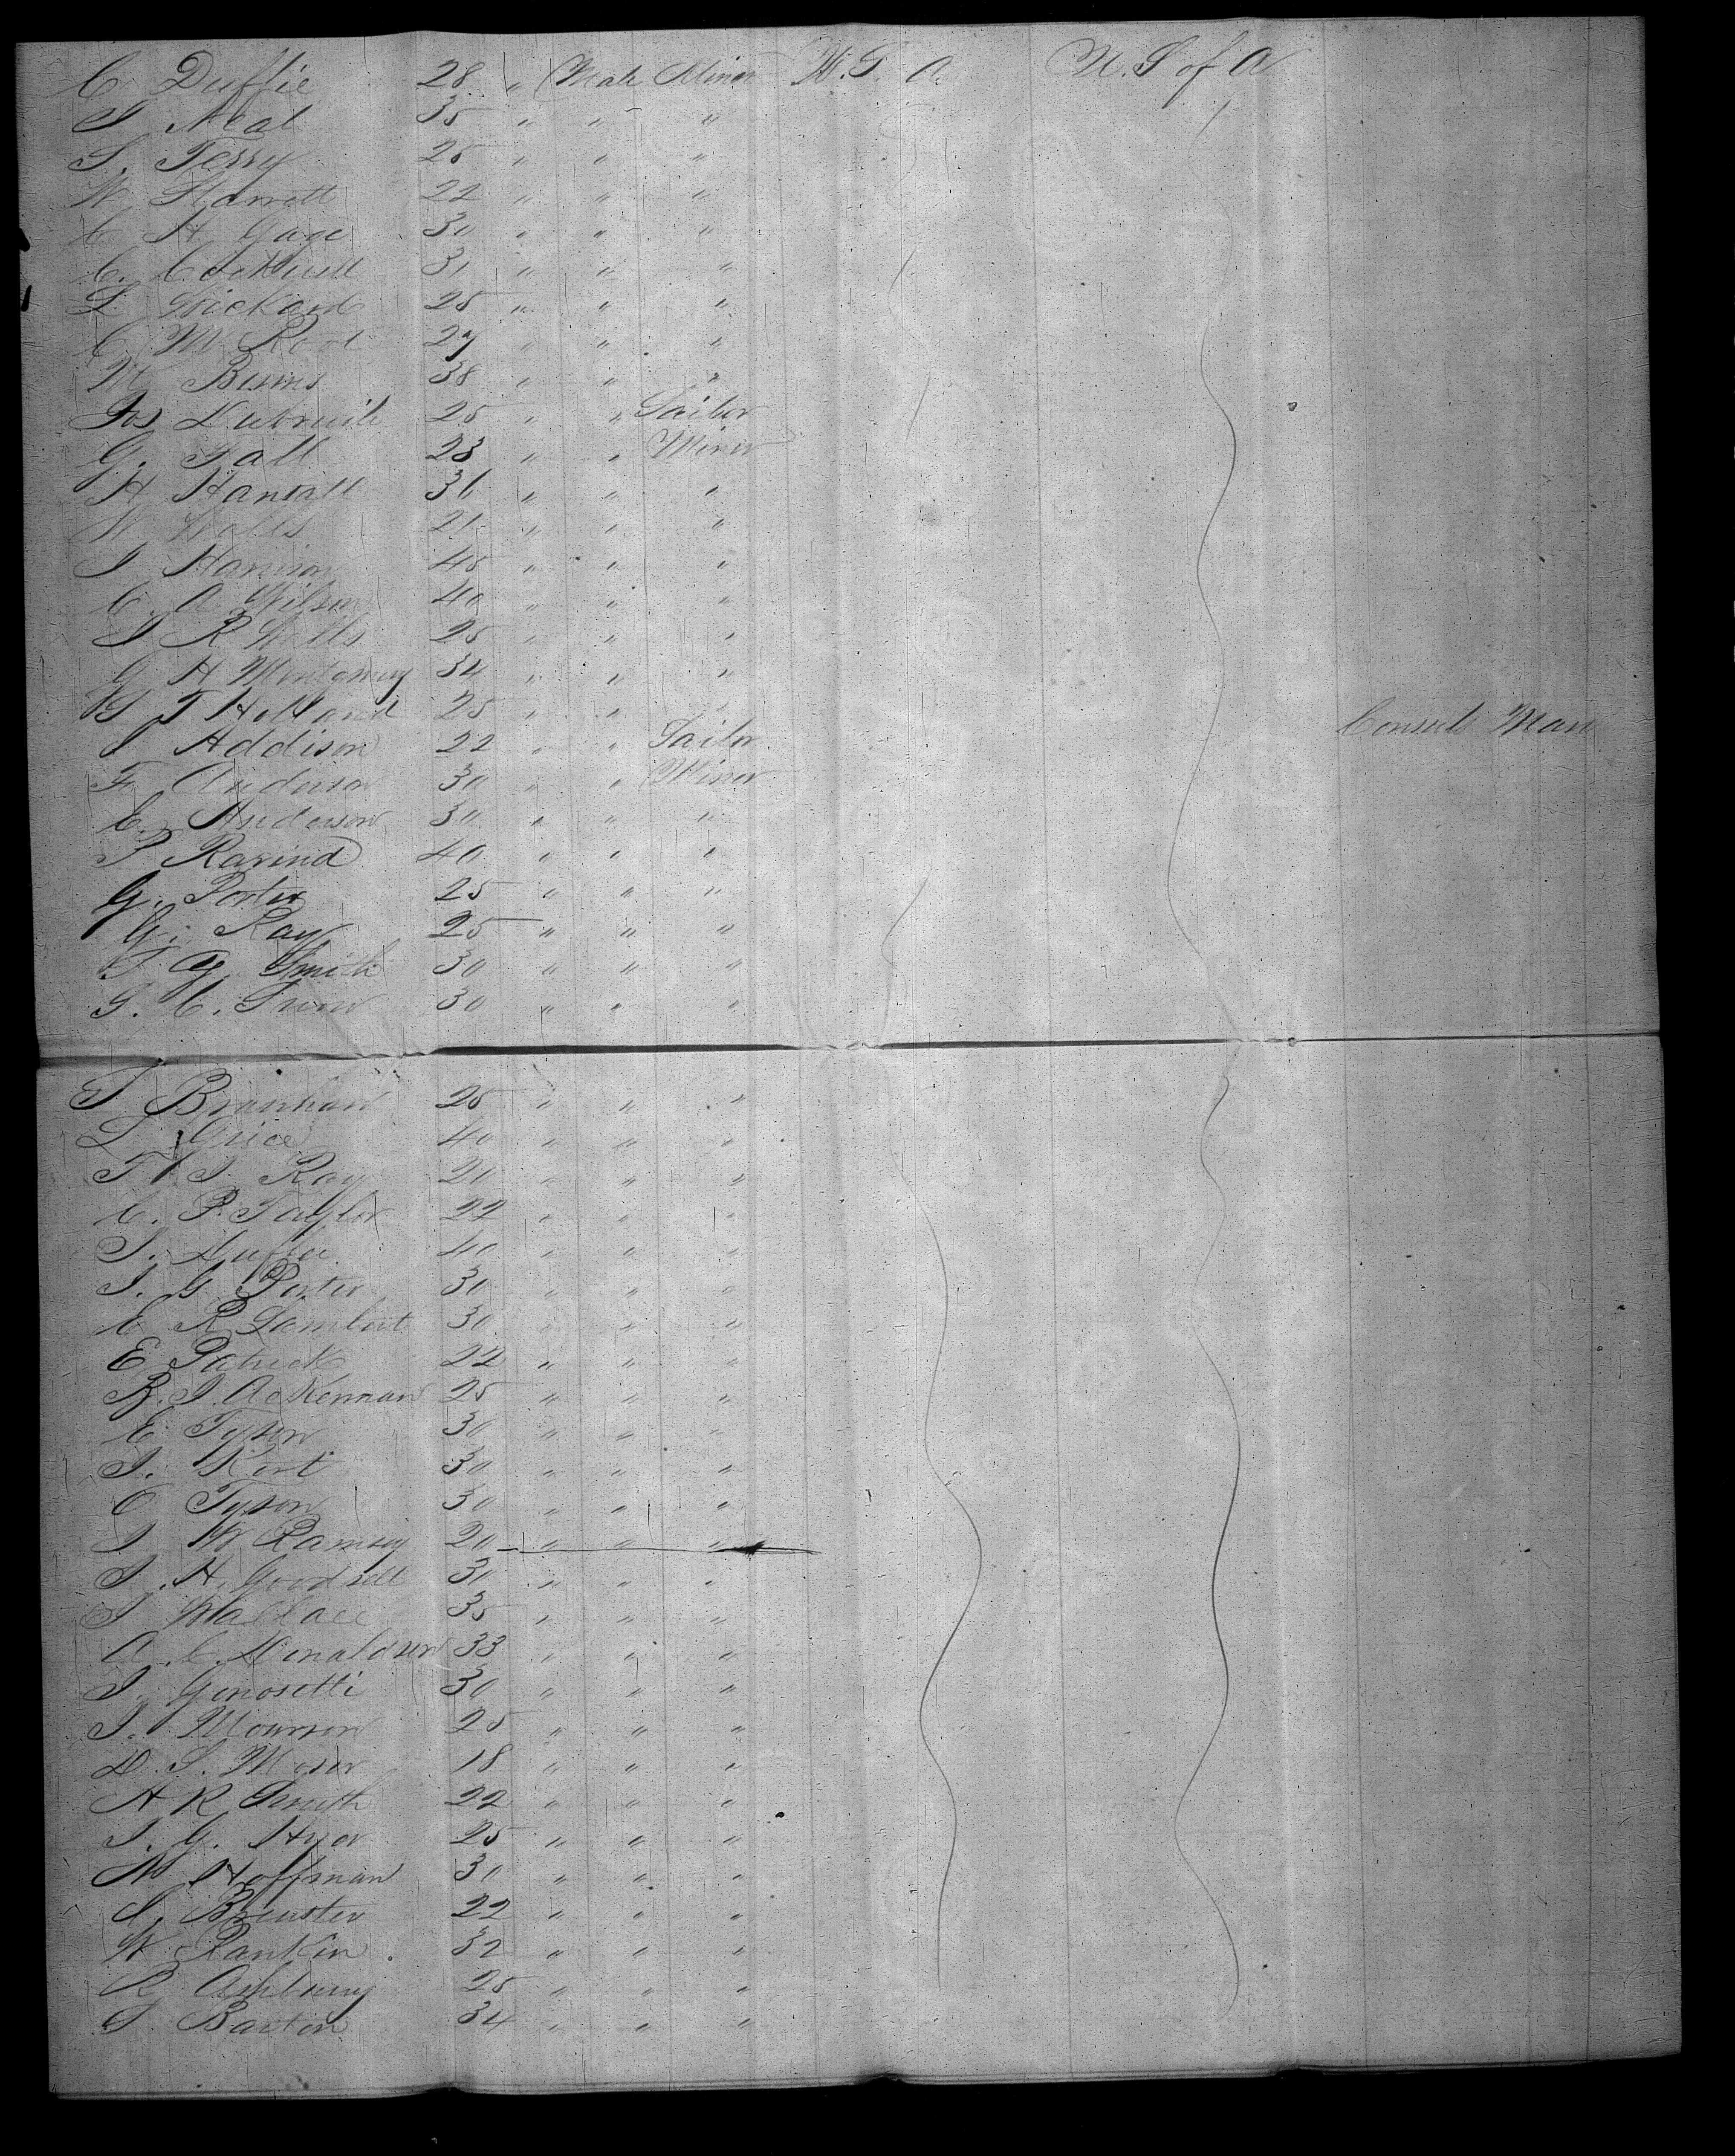 C Duffie 28 " Male Miner U.S. A. U. S of A
J Neal 35 " " "
S. Terry 25 " " "
W. Starrett 22 " " "
C H Gage 30 " " "
C. Cockrell 31 " " "
L. Rickard 25 " " "
C M Root 27 " " "
W Burns 38 " " "
Jos Dubruile 25 " " Sailor
G. Tall 23 " " Miner
H Hansell 36 " " "
W Walls 21 " " "
J Harrison 45 " " "
C. A. Wilson 40 " " "
J R Wells 25 " " "
G H Montgomery 34 " " "
G T Holland 25 " " " Consuls Man
J Addison 22 " " Sailor
F. Anderson 30 " " Miner
C. Anderson 30 " " "
P Ravind 40 " " "
G. Porter 25 " " "
G. Ray 25 " " "
J G Smith 30 " " "
G. C. Trow 30 " " "
J Branham 25 " " "
L Grice 40 " " "
T J. Ray 20 " " "
C. P. Taylor 22 " " "
J. Duffee 40 " " "
J. G. Porter 30 " " "
C R Lambert 30 " " "
E Patrick 22 " " "
B. J. Ackerman 25 " " "
E Tyson 30 " " "
J. Root 30 " " "
C Tyson 30 " " "
J W Ramsey 20 " " "
J. H. Goodsell 30 " " "
J Wallace 35 " " "
A. C. Donaldson 33 " " "
J. Genosetti 30 " " "
J. Mourson 25 " " "
D. S. Moser 18 " " "
A R Smith 22 " " "
J. G. Hyer 25 " " "
M Hoffman 30 " " "
S. Brewster 22 " " "
W. Rankin. 32 " " "
R Ashbury 25 " " "
J. Barton 34 " " "